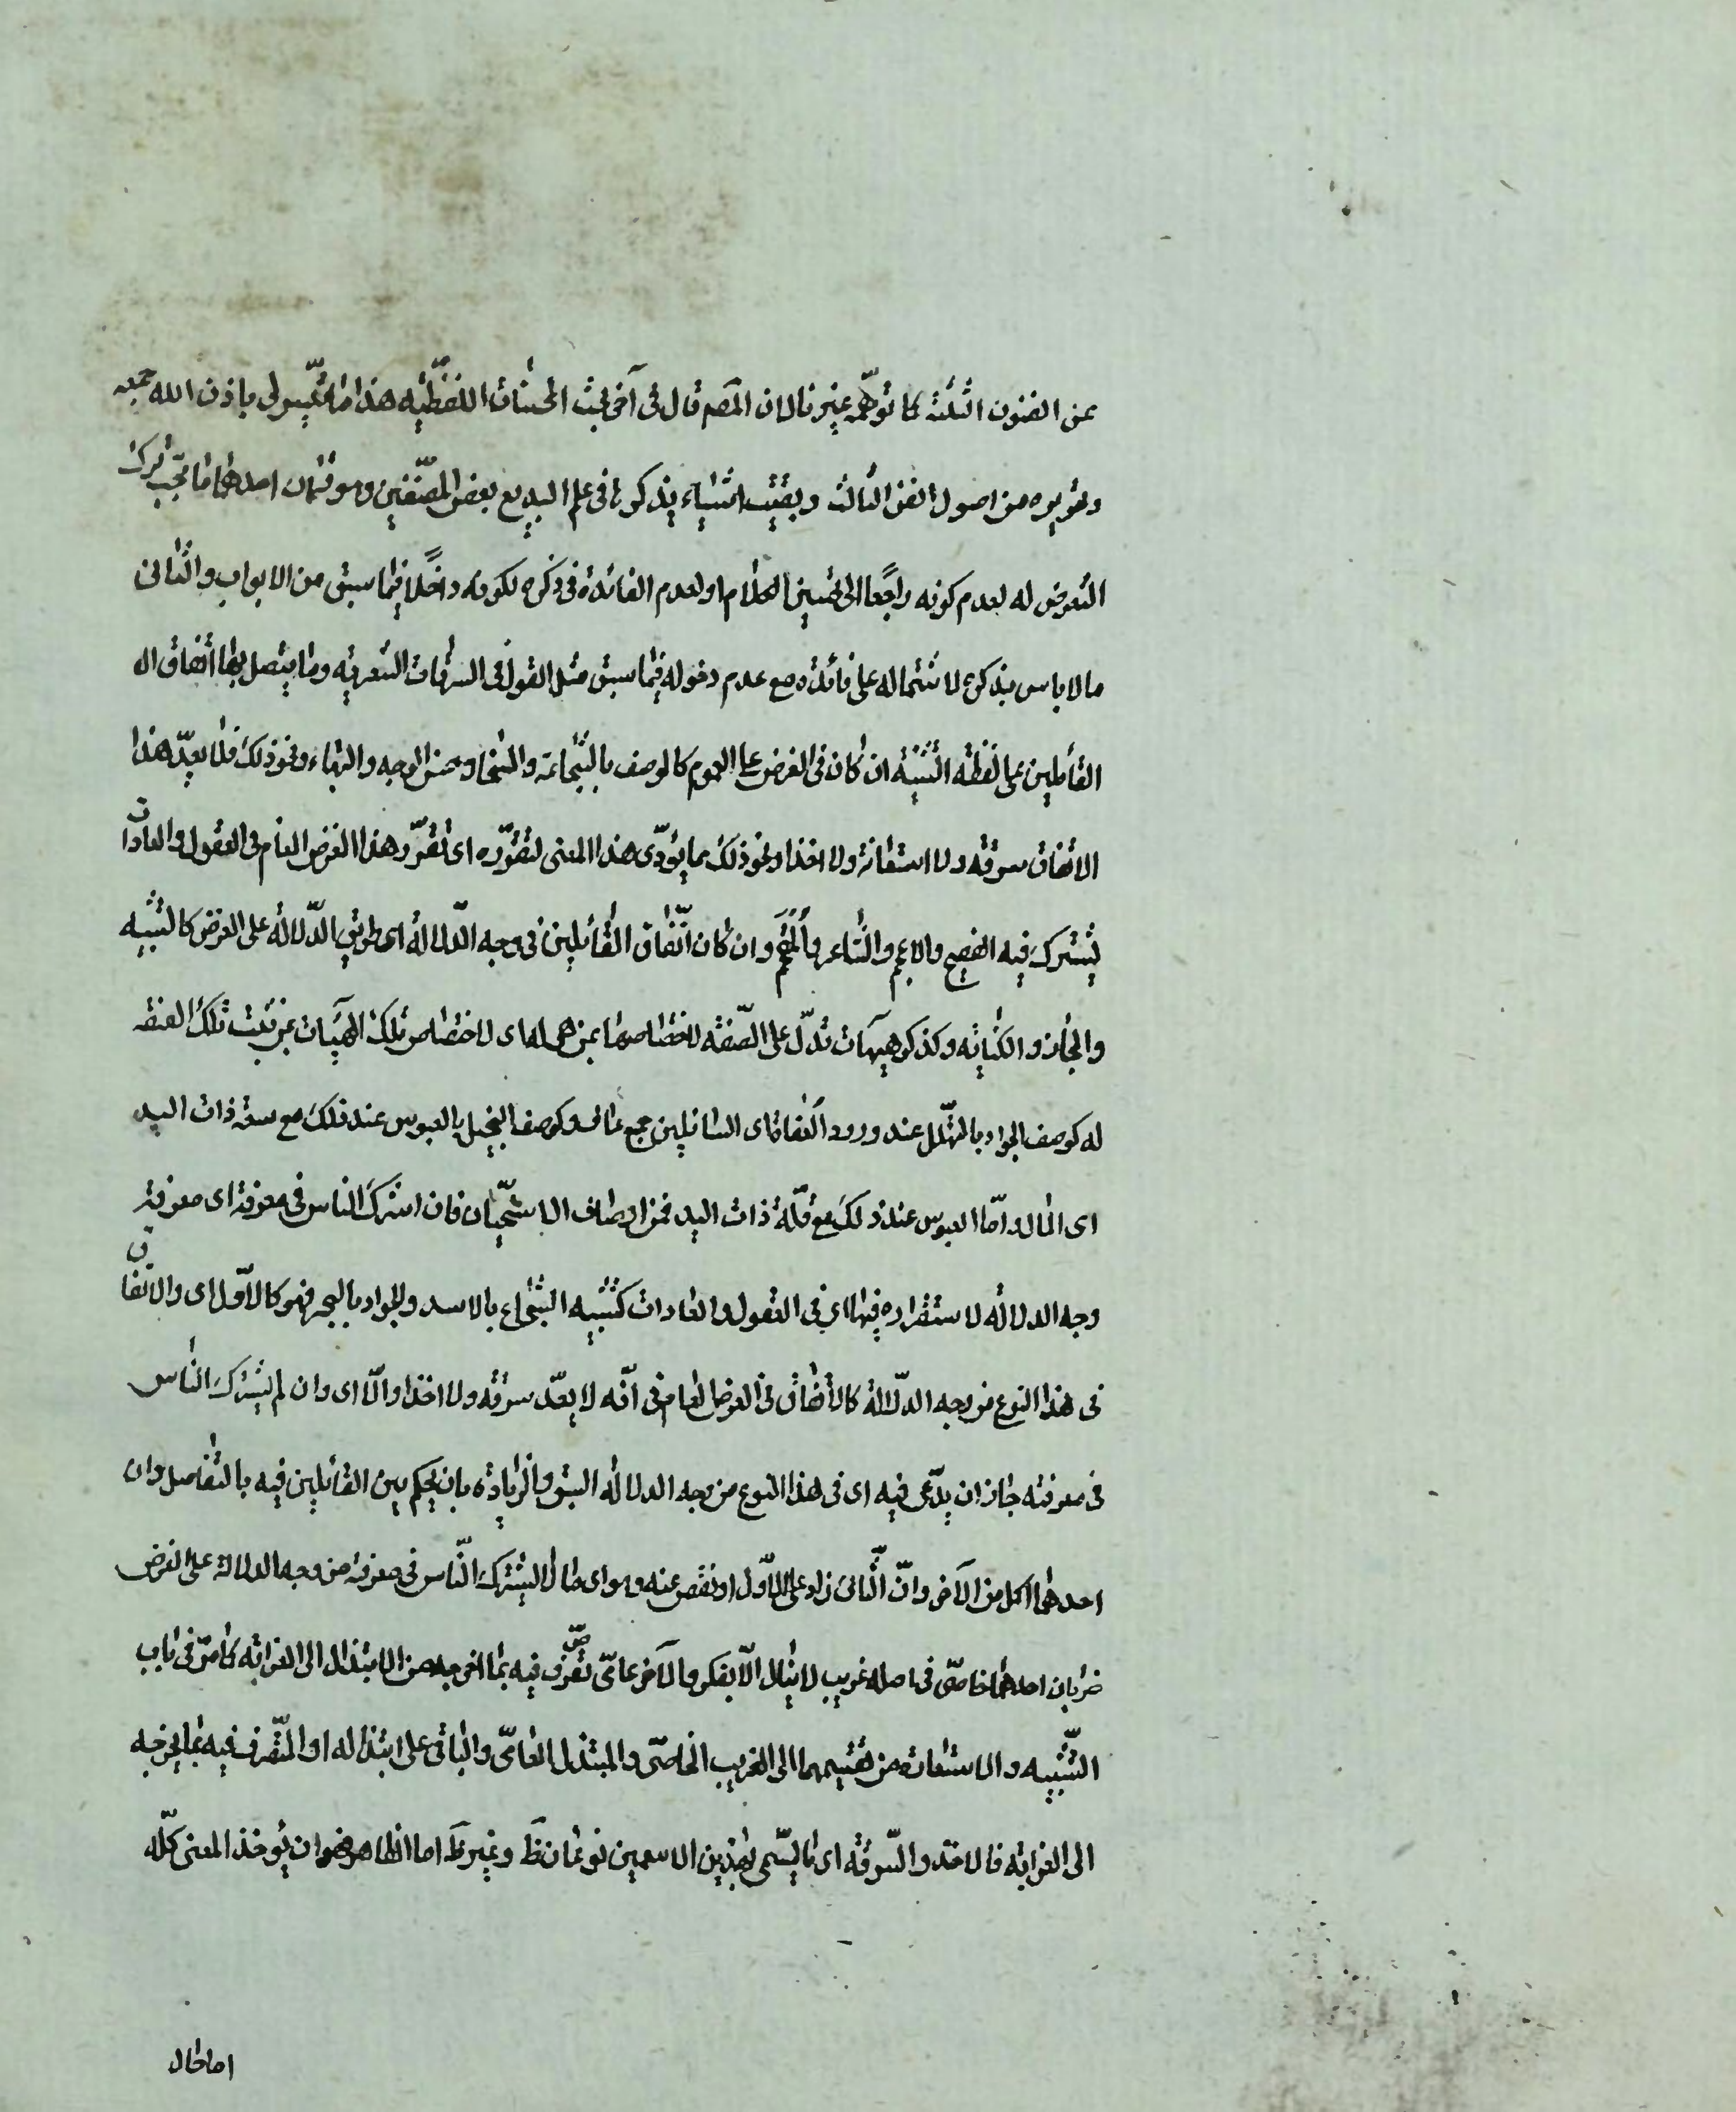 عن الفنون الثلثة كما توهمه غيرنا لان المصه قال فى آخر بحث المحسنات اللفظيه هذا ما تيسر لى باذن الله جمعه
وتحريره من اصول الفن الثالث وبقيت اشياء يذكرها فى علم البديع بعض المصنّفين وهو قسمان احدهما ما يجب ترك
التعرض له لعدم كونه راجعًا الى تحسين الكلام او لعدم الفائدة فى ذكره لكونه داخلًا فيما سبق من الابواب والثانى
ما لا باس بذكره لاشتماله على فائده مع عدم دخوله فيما سبق مثل القول فى السرقات الشعريه وما يتصل بها اتفاق ال
القائلين على لفظه التثنيه ان كان فى الغرض على العموم كالوصف بالشجاعة والسخا وحسن الوجه والبهاء ونحو ذلك فلا يعدّ هذا
الاتفاق سرقه ولا استعانة ولا اخذا ونحو ذلك مما يؤدّى هذا المعنى لتقرّره اى تقرّر هذا الغرض العام فى العقول والعادات
يشترك فيه الفصيح والاعجم والشاعر والمفحم وان كان اتّفاق القائلين فى وجه الدّلالة اى طريق الدّلاله على الغرض كالتشبيه
والمجاز والكنايه وكذكر هيئآت تدلّ على الصّفه لاختصاصها بمن هى له اى لاختصاص تلك الهيئات بمن تثبت تلك الصفه
له كوصف الجواد بالتهلّل عند ورود العفاة اى السائلين جمع عاف وكوصف البخيل بالعبوس عند ذلك مع سعة ذات اليد
اى المال وامّا العبوس عند ذلك مع قلّة ذات اليد فمن اوصاف الاسخياء فان اشترك الناس فى معرفته اى معرفة
وجه الدلاله لاستقراره فيها اى فى العقول والعادات كتشبيه الشجاع بالاسد والجواد بالبحر فهو كالاوّل اى والاتّفاق
فى هذا النوع من وجه الدّلالة كالاتفاق فى الغرض العام فى انّه لا يعدّ سرقه ولا اخذا والّا اى وان لم يشترك الناس
فى معرفته جاز ان يدّعى فيه اى فى هذا النوع من وجه الدلاله السبق والزيادة بان يحكم بين القائلين فيه بالتفاضل وان
احدهما اكمل من الآخر وانّ الثّانى زاد على الاوّل او نقص عنه وهو اى ما لا يشترك النّاس فى معرفته من وجه الدلالة على الغرض
ضربان احدهما خاصّى فى اصله غريب لا ينال الّا بفكر والآخر عامّى تصرّف فيه بما اخرجه من الابتذال الى الغرابه كما مرّ فى باب
التّشبيه والاستعاره من تقسيمهما الى الغريب الخاصّى والمبتذل العامّى والباقى على ابتذاله او المتصرف فيه بما يخرجه
الى الغرابه فالاخذ والسّرقه اى ما يسّمى بهذين الاسمين نوعان ظَ وغير ظَ اما الظاهر فهو ان يؤخذ المعنى كلّه
اما حال